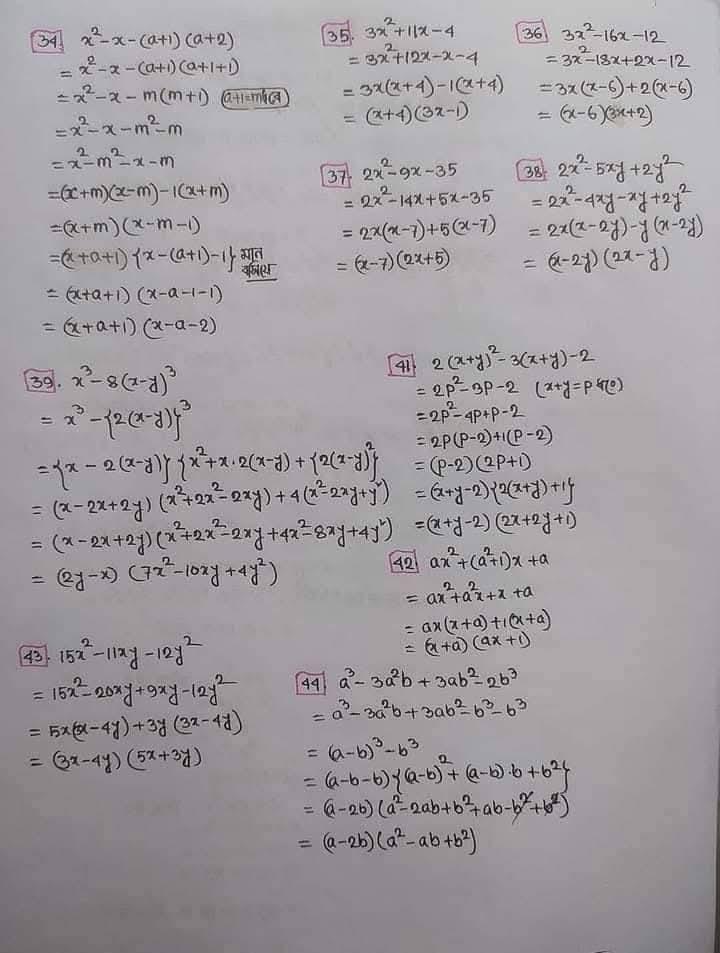 34. x²-x-(a+1)(a+2)
= x²-x-(a+1)(a+1+1)
= x²-x-m(m+1)
= x²-x-m²-m
= x²-m²-x-m
=(x+m)(x-m)-1(x+m)
=(x+m)(x-m-1)
=(x+a+1){x-(a+1)-1} মান বসিয়ে
= (x+a+1)(x-a-1-1)
= (x+a+1)(x-a-2)
35. 3x²+11x-4
= 3x²+12x-x-4
= 3x(x+4)-1(x+4)
= (x+4)(3x-1)
36 3x²-16x-12
=3x²-18x+2x-12
=3x(x-6)+2(x-6)
= (x-6)(3x+2)
37. 2x²-9x-35
= 2x²-14x+5x-35
= 2x(x-7)+5(x-7)
= (x-7)(2x+5)
38. 2x²-5xy+2y²
= 2x²-4xy-xy+2y²
= 2x(x-2y)-y(x-2y)
= (x-2y)(2x-y)
39. x³-8(x-y)³
= x³-{2(x-y)}³
={x-2(x-y)}{x²+x·2(x-y)+{2(x-y)}²
= (x-2x+2y)(x²+2x²-2xy)+4(x²-2xy+y²)
= (x-2x+2y)(x²+2x²-2xy+4x²-8xy+4y²)
= (2y-x)(7x²-10xy+4y²)
41. 2(x+y)²-3(x+y)-2
= 2p²-3p-2 (x+y=p ধরে)
=2p²-4p+p-2
=2p(p-2)+1(p-2)
=(p-2)(2p+1)
=(x+y-2){2(x+y)+1}
=(x+y-2)(2x+2y+1)
42. ax²+(a²+1)x+a
= ax²+a²x+x+a
= ax(x+a)+1(x+a)
= (x+a)(ax+1)
43. 15x²-11xy-12y²
= 15x²-20xy+9xy-12y²
= 5x(3x-4y)+3y(3x-4y)
= (3x-4y)(5x+3y)
44. a³-3a²b+3ab²-2b³
= a³-3a²b+3ab²-b³-b³
= (a-b)³-b³
= (a-b-b){(a-b)²+(a-b)·b+b²}
= (a-2b)(a²-2ab+b²+ab-b²+b²)
= (a-2b)(a²-ab+b²)